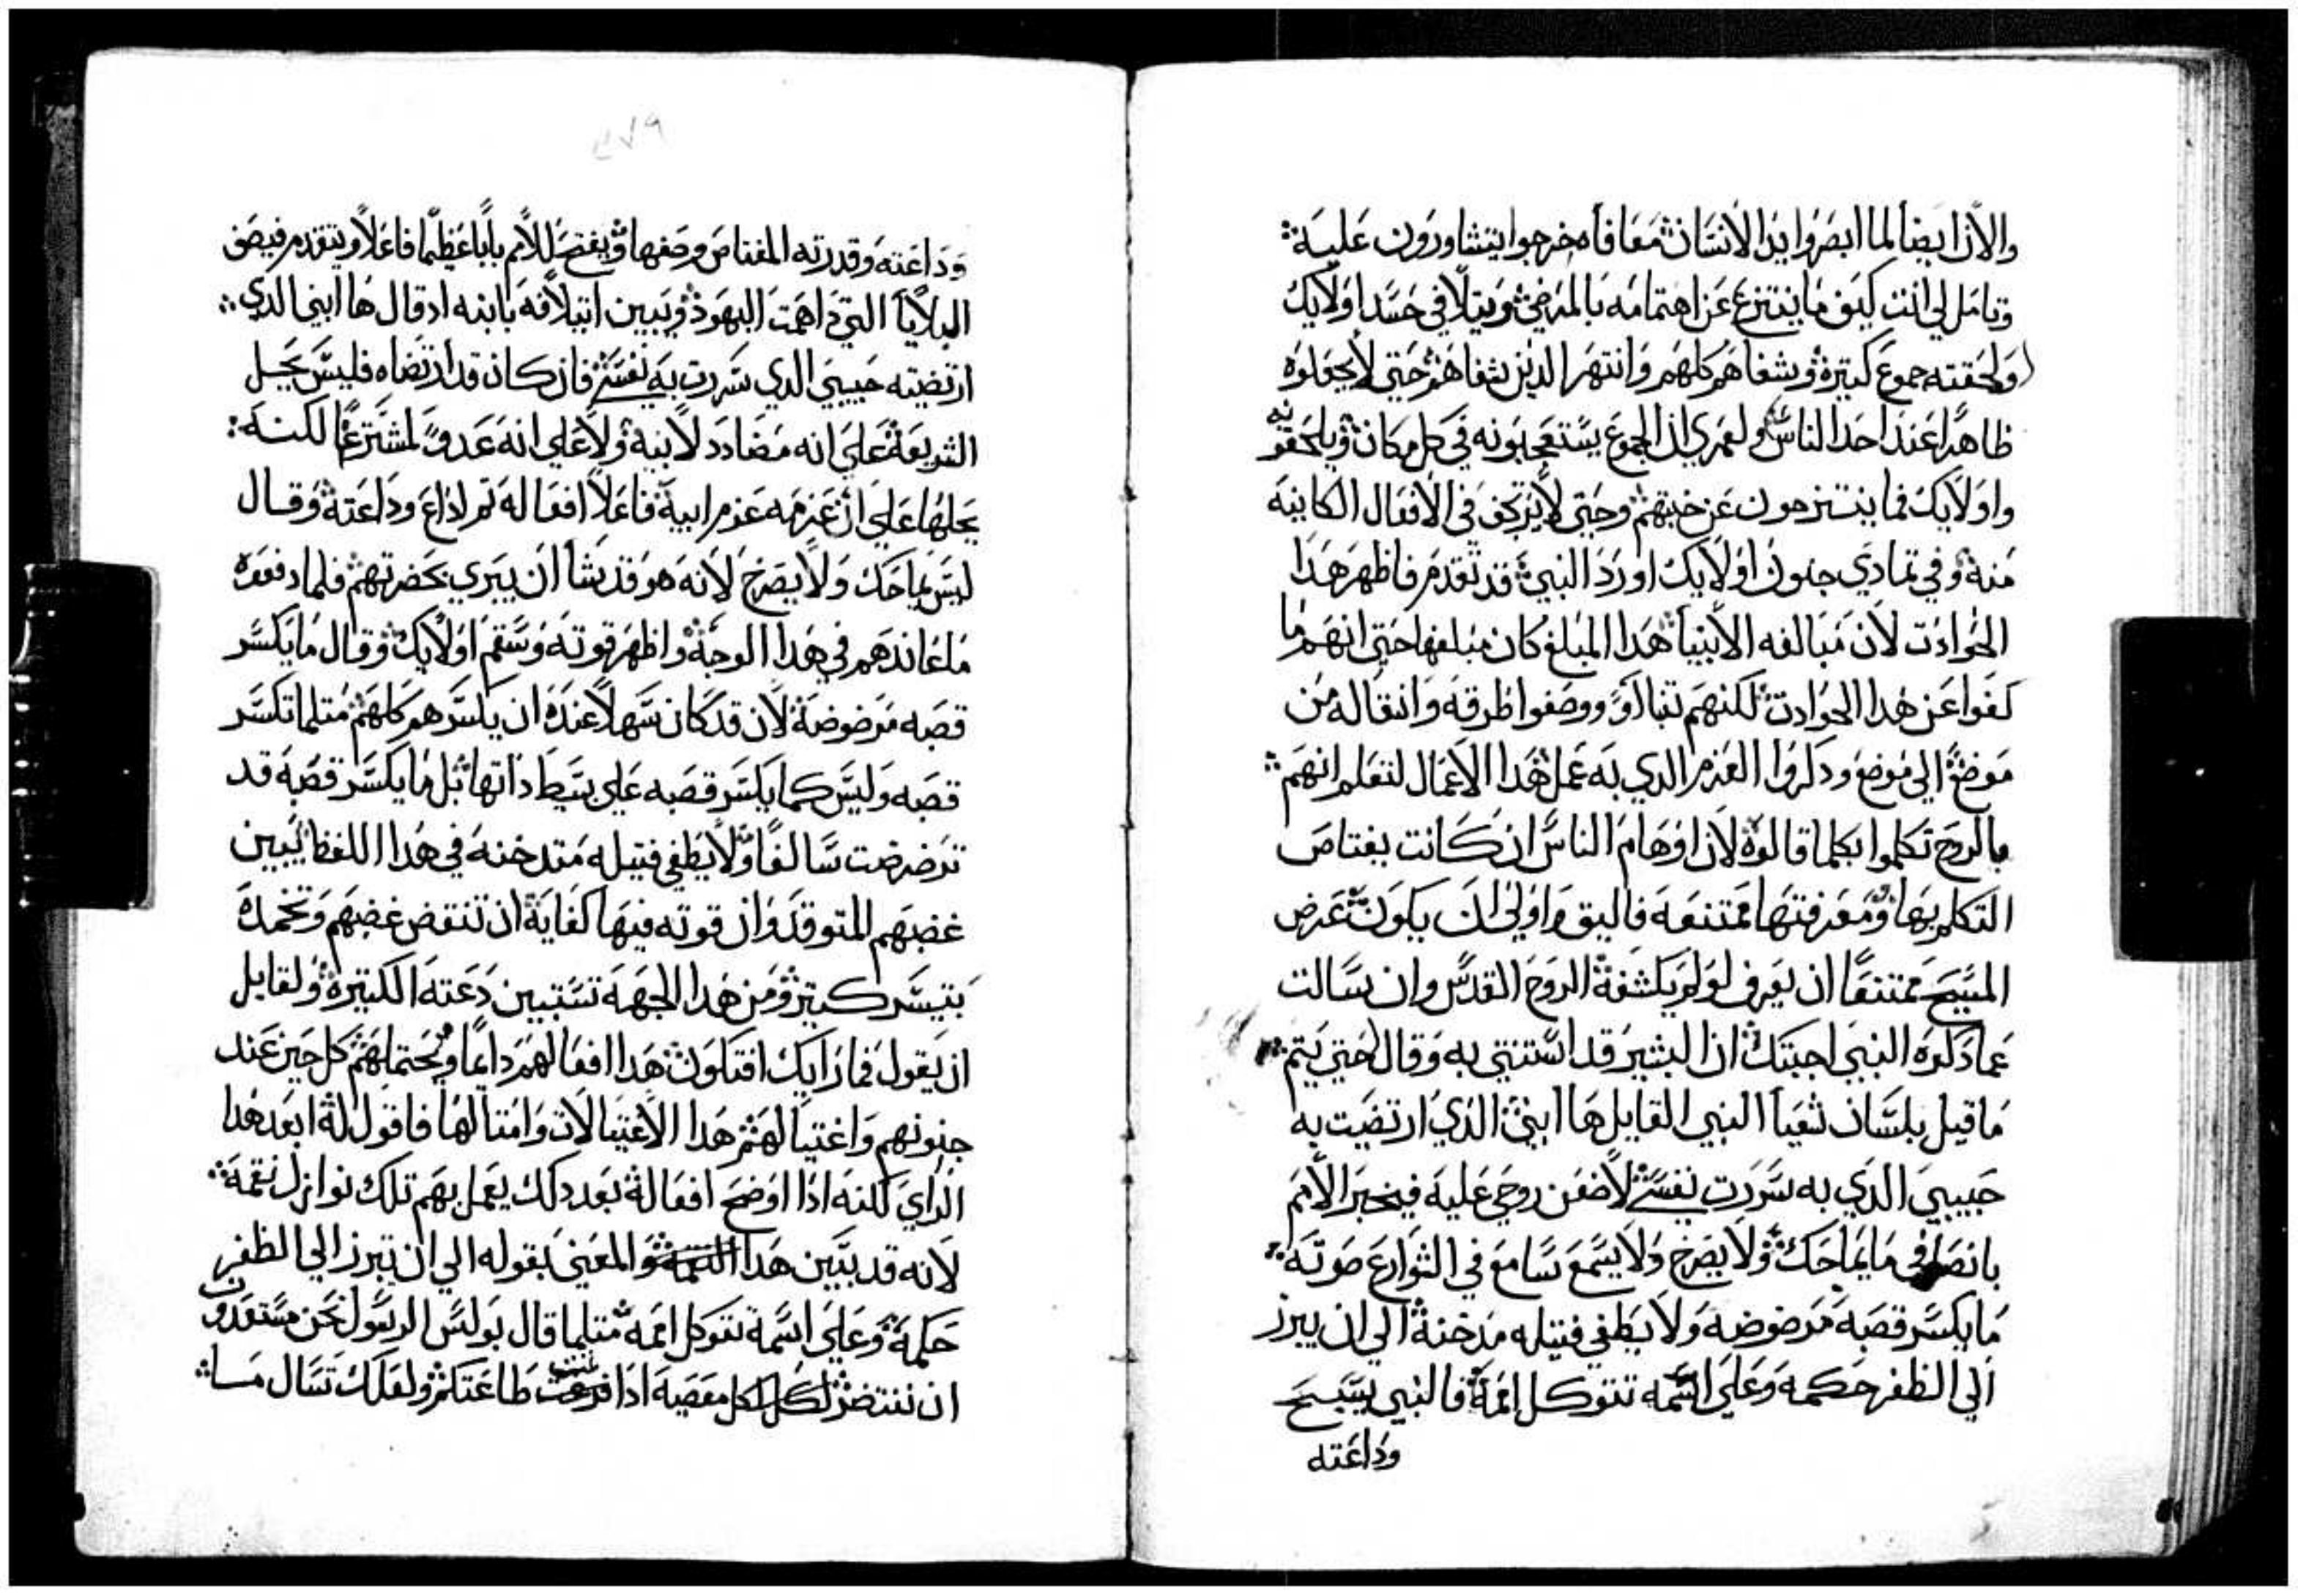 والان ايضا لما ابصروا يد الانسان معافاه خرجوا يتشاورون عليه
وتامل لي انت كيف ما ينتزع عن اهتمامه بالمرضي ويتلافي حسد اولايك
ولحقته جموع كتيرة وشفاهم كلهم وانتهر الدين شفاهم حتي لا يجعلوه
ظاهرا عند احد الناس ولعمري ان الجموع يستعجبونه في كل مكان ويلحقونه
واولايك فما ينتزحون عن خبتهم وحتي لا يرتجف في الافعال الكاينه
منه وفي تمادي جنون اولايك اورد النبي قد تقدم فاظهر هدا
الحوادت لان مبالغه الانبيا هدا المبلغ كان مبلغها حتي انهم ما
كفوا عن هدا الحوادت لكنهم تنباوا ووصفوا طرقه وانتقاله من
موضع الي موضع ودكروا العزم الدي به عمل هدا الاعمال لتعلم انهم
بالروح تكلموا بكلما قالوه لان اوهام الناس ان كانت يفتاص
التكلم بها ومعرفتها ممتنعه فاليق واولي ان يكون عرض
المسيح ممتنعا ان يعرف لو لم يكشفه الروح القدس وان سالت
عما دكره النبي اجبتك ان البشير قد استتني به وقال حتي يتم
ما قيل بلسان شعيا النبي القايل ها ابني الدي ارتضيت به
حبيبي الدي به سررت نفسي لاضعن روحي عليه فيخبر الامم
بانصافي ما يماحك ولا يصرخ ولا يسمع سامع في الشوارع صوته
ما يكسر قصبه مرضوضه ولا يطفي فتيله مدخنة الي ان يبرز
الي الظفر حكمه وعلي اسمه تتوكل امة فالنبي يسبح
وداعته
وداعته وقدرته المفتاص وصفها ويفتح للامم بابا عظيما فاعلا ويتقدم فيصف
البلايا التي داهمت اليهود ويبين ايتلافه بابنه اد قال ها ابني الدي
ارتضيته حبيبي الدي سررت به نفسي فان كان قد ارتضاه فليس يحل
الشريعة علي انه مضادد لابنه ولا علي انه عدو لمشترعها لكنه
يحلها علي ان عزمه عزم ابيه فاعلا افعاله تم اداع وداعته وقال
ليس يماحك ولا يصرخ لانه هو قد يشا ان يبري بحضرتهم فلما دفعوه
ما عاندهم في هدا الوجه واظهر قوته وسقم اولايك وقال ما يكسر
قصبه مرضوضة لان قد كان سهلا عنده ان يكسرهم كلهم متلما تكسر
قصبه وليس كما يكسر قصبه علي بسيط داتها بل ما يكسر قصبه قد
ترضرضت سالفا ولا يطفي فتيله متدخنه في هدا اللفظ يبين
غضبهم المتوقد وان قوته فيها كفاية ان تنقض غضبهم وتخمده
بتيسر كتير ومن هدا الجهه تستبين دعته الكتيرة ولقايل
ان يقول فما رايك افتكون هدا افعالهم دايما ويحتملهم كل حين عند
جنونهم واغتيالهم هدا الاغتيالات وامتالها فاقول له ابعد هدا
الراي لكنه ادا اوضح افعاله بعد دلك يعمل بهم تلك نوازل نقمة
لانه قد بين هدا والمعني بقوله الي ان تبرز الي الظفر
حكمه وعلي اسمه تتوكل امه متلما قال بولس الرسول نحن مستعدون
ان ننتضر لكل معصيه ادا طاعتكم ولعلك تسال مسا